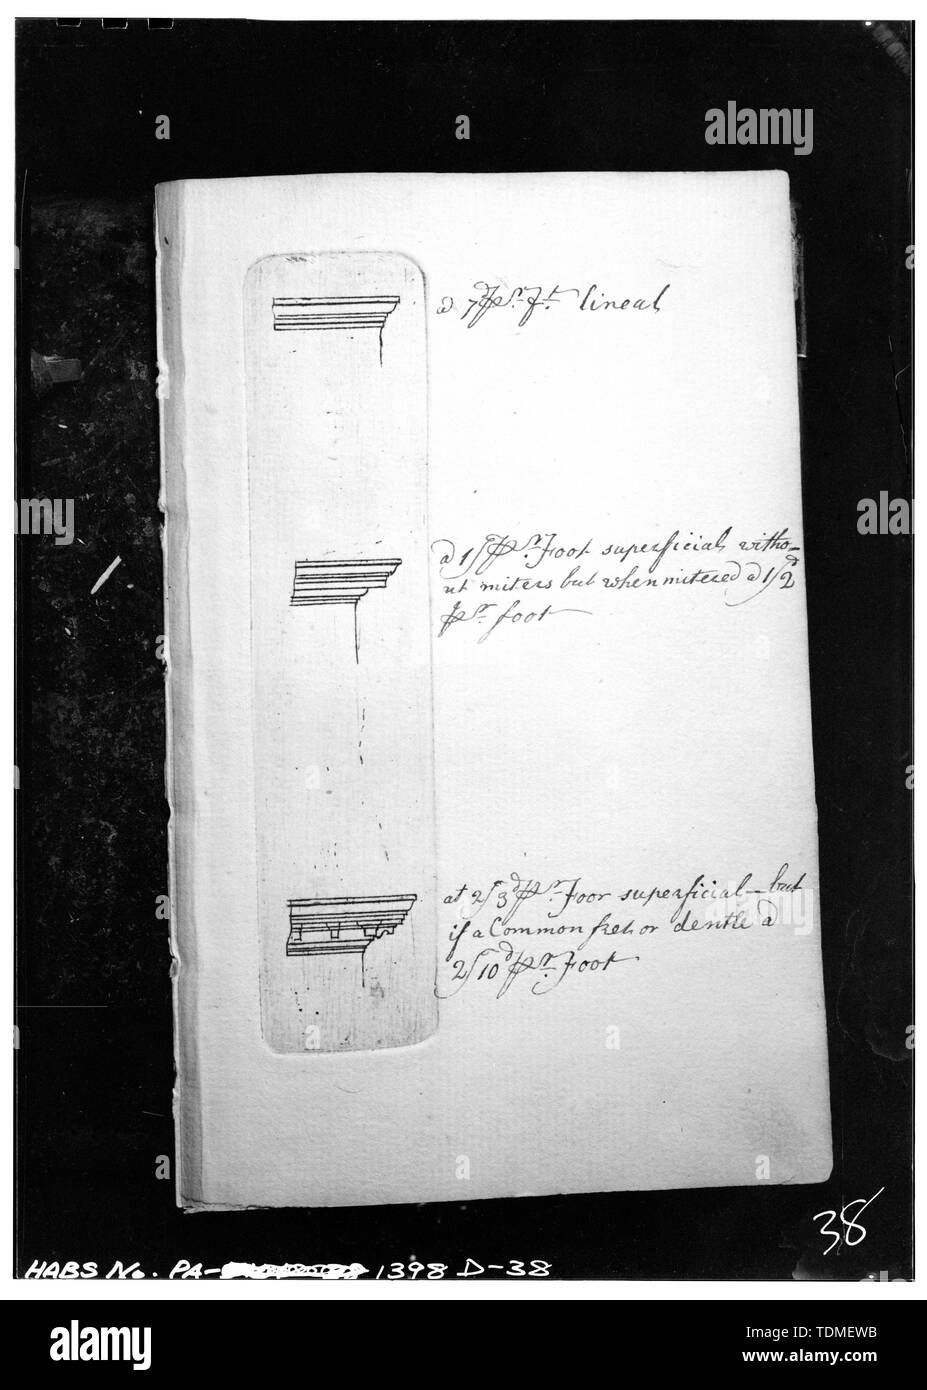 a 7d pr. Ft. lineal
a 1/ pr. Foot superficial witho-
ut miters but when mitered a 1/2d
pr. foot
at 2/3d pr. Foot superficial - but
if a Common fret or dentle a
2/10d pr. Foot
38
HABS No. PA- 1398 D-38
alamy
Image ID: TDMEWB
www.alamy.com